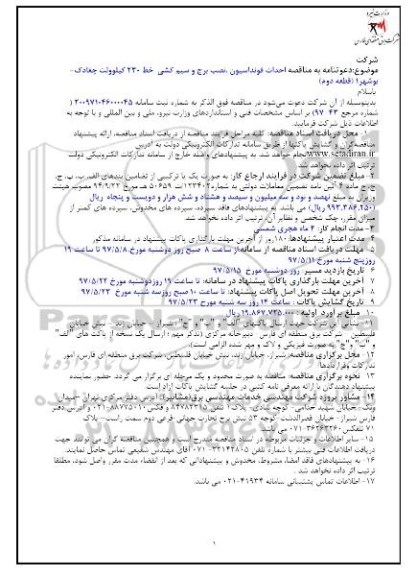 وزارت نیرو
شرکت برق منطقه‌ای فارس
شرکت
موضوع:دعوتنامه به مناقصه احداث فونداسیون ،نصب برج و سیم کشی خط ۲۳۰ کیلوولت چغادک-
بوشهر۱ (قطعه دوم)
باسلام
بدینوسیله از آن شرکت دعوت می‌شود در مناقصه فوق الذکر به شماره ثبت سامانه
شماره مرجع ۴۳-۹۷) بر اساس مشخصات فنی و استانداردهای وزارت نیرو، ملی و بین المللی و با توجه به
اطلاعات ذیل شرکت فرمایید.
۱- محل دریافت اسناد مناقصه: کلیه مراحل فرآیند مناقصه از دریافت اسناد مناقصه، ارائه پیشنهاد
مناقصه‌گران و گشایش پاکتها از طریق سامانه تدارکات الکترونیکی دولت به آدرس
www.setadiran.ir انجام خواهد شد. به پیشنهادهای واصله خارج از سامانه تدارکات الکترونیکی دولت
ترتیب اثر داده نخواهد شد.
۲- مبلغ تضمین شرکت در فرآیند ارجاع کار: به صورت یک یا ترکیبی از تضامین بندهای الف، ب، پ، ج،
ماده ۴ آیین نامه تضمین معاملات دولتی به شماره ۱۲۳۴۰۲/ت ۵۰۶۵۹ ه مورخ ۹۴/۹/۲۲ مصوب هیئت
وزیران به مبلغ نهصد و نود و سه میلیون و سیصد و هشتاد و شش هزار و دویست و پنجاه ریال
(۹۹۳.۳۸۶.۲۵۰ ریال) می باشد. به پیشنهادهای فاقد سپرده، سپرده های مخدوش، سپرده های کمتر از
میزان مقرر، چک شخصی و نظایر آن، ترتیب اثر داده نخواهد شد.
۳- مدت انجام کار: ۴ ماه هجری شمسی
۴- مدت اعتبار پیشنهادها: ۱۸۰ روز از آخرین مهلت بارگذاری پاکات پیشنهاد در سامانه مذکور
۵- مهلت دریافت اسناد مناقصه از سامانه: از ساعت ۸ صبح روز دوشنبه مورخ ۹۷/۵/۸ تا ساعت ۱۹
روز پنج شنبه مورخ ۹۷/۵/۱۱
۶- تاریخ بازدید مسیر: روز دوشنبه مورخ ۹۷/۵/۱۵
۷- آخرین مهلت بارگذاری پاکات پیشنهاد در سامانه: تا ساعت ۱۹ روز دوشنبه مورخ ۹۷/۵/۲۲
۸- آخرین مهلت تحویل اصل پاکات پیشنهاد: تا ساعت ۱۰ صبح روز سه شنبه مورخ ۹۷/۵/۲۳
۹- تاریخ گشایش پاکات: ساعت ۱۴ روز سه شنبه مورخ ۹۷/۵/۲۳
۱۰- مبلغ برآورد اولیه: ۱۹.۸۶۷.۷۲۵.۰۰۰ ریال
۱۱- نشانی شرکت جهت ارسال پاکتهای "الف"، "ب" و "ج": شیراز - خیابان زند - نبش خیابان
فلسطین - شرکت برق منطقه ای فارس - دبیرخانه مرکزی (تذکر مهم: ارسال یک نسخه از پاکت های "الف"
و "ب" و "ج" به صورت فیزیکی و لاک و مهر شده الزامی است).
۱۲- محل برگزاری مناقصه: شیراز، خیابان زند، نبش خیابان فلسطین، شرکت برق منطقه ای فارس، امور
تدارکات وقراردادها
۱۳- نحوه برگزاری مناقصه: مناقصه به صورت محدود و یک مرحله ای برگزار می گردد. حضور نماینده
پیشنهاد دهندگان با ارائه معرفی نامه کتبی در جلسه گشایش پاکات آزاد است.
۱۴- مشاور پروژه: شرکت مهندسی خدمات مهندسی برق (مشانیر) آدرس دفتر مرکزی: تهران - میدان
ونک - خیابان شهید خدامی
۱۵- سایر اطلاعات و جزئیات مربوطه در اسناد مناقصه مندرج است و همچنین مناقصه گران می توانند جهت
دریافت اطلاعات فنی بیشتر با شماره تلفن آقای مهندس تماس حاصل نمایند.
۱۶- به پیشنهادهای فاقد امضا، مشروط، مخدوش و پیشنهاداتی که بعد از انقضاء مدت مقرر واصل شود، مطلقا
ترتیب اثر داده نخواهد شد.
۱۷- اطلاعات تماس پشتیبانی سامانه ۴۱۹۳۴-۰۲۱ می باشد.
۱